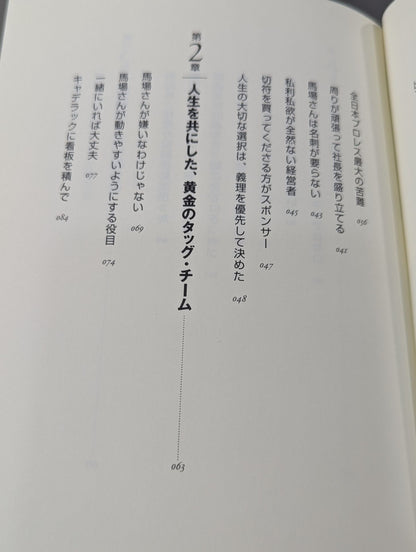 全日本プロレス最大の苦難 036
周りが頑張って社長を盛り立てる 041
馬場さんは名刺が要らない 043
私利私欲が全然ない経営者 045
切符を買ってくださる方がスポンサー 047
人生の大切な選択は、義理を優先して決めた 048
第2章 人生を共にした、黄金のタッグ・チーム 063
馬場さんが嫌いなわけじゃない 069
馬場さんが動きやすいようにする役目 074
一緒にいれば大丈夫 077
キャデラックに看板を積んで 084